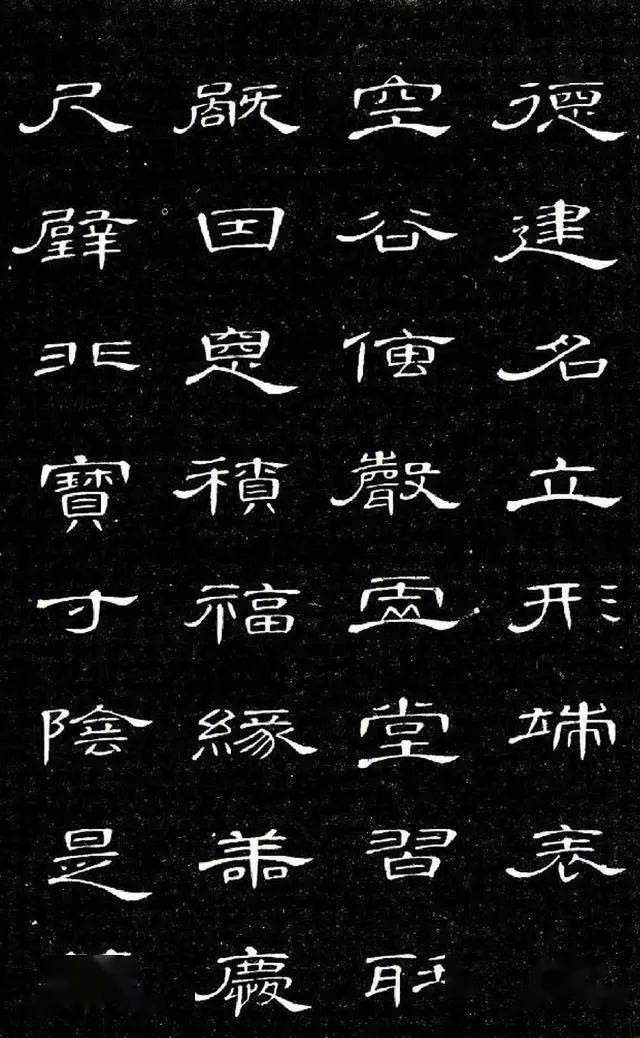 德建名立形端表
空谷傳聲虛堂習
旤因惡積福緣善慶
尺璧非寶寸陰是